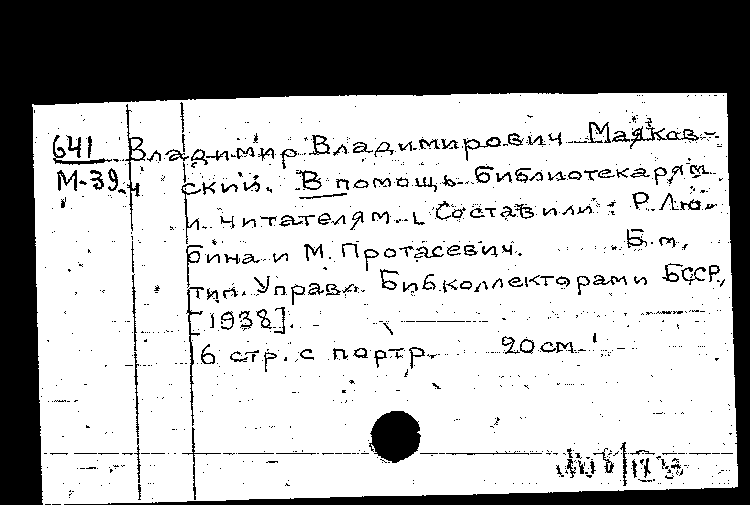 641 Владимир Владимирович Маяков-
М-39-ч ский. В помощь библиотекарям
и читателям. Составили: Р. Лю-
бина и М. Протасевич. Б.м.,
тип. Управл. Бибколлекторами БССР,
[1938].
16 стр. с портр. 20 см